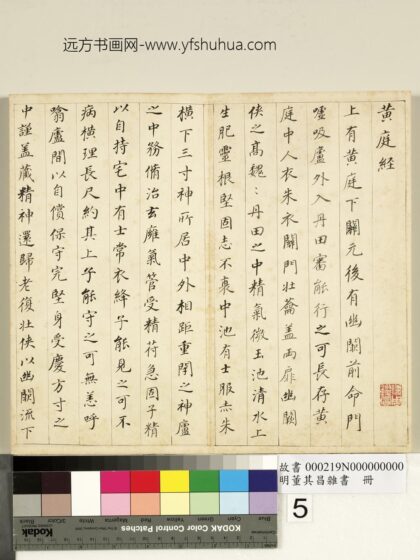 远方书画网-www.yfshuhua.com
黄庭経
上有黄庭下關元後有幽闕前命門
噓吸廬外入丹田審能行之可長存黄
庭中人衣朱衣關門壮籥盖兩扉幽闕
侠之髙魏:丹田之中精氣微玉池清水上
生肥靈根堅固志不衰中池有士服赤朱
横下三寸神所居中外相距重閉之神廬
之中務脩治玄廱氣管受精符急固子精
以自持宅中有士常衣絳子能見之可不
病横理長尺約其上子能守之可無恙呼
噏廬間以自償保守完堅身受慶方寸之
中謹盖藏精神還歸老復壮侠以幽闕流下
故書 000219N000000000
明董其昌雜書 冊
5
KODAK Color Control Patches
Blue
Cyan
Green
Yellow
Red
Magenta
White
3/Color
Black